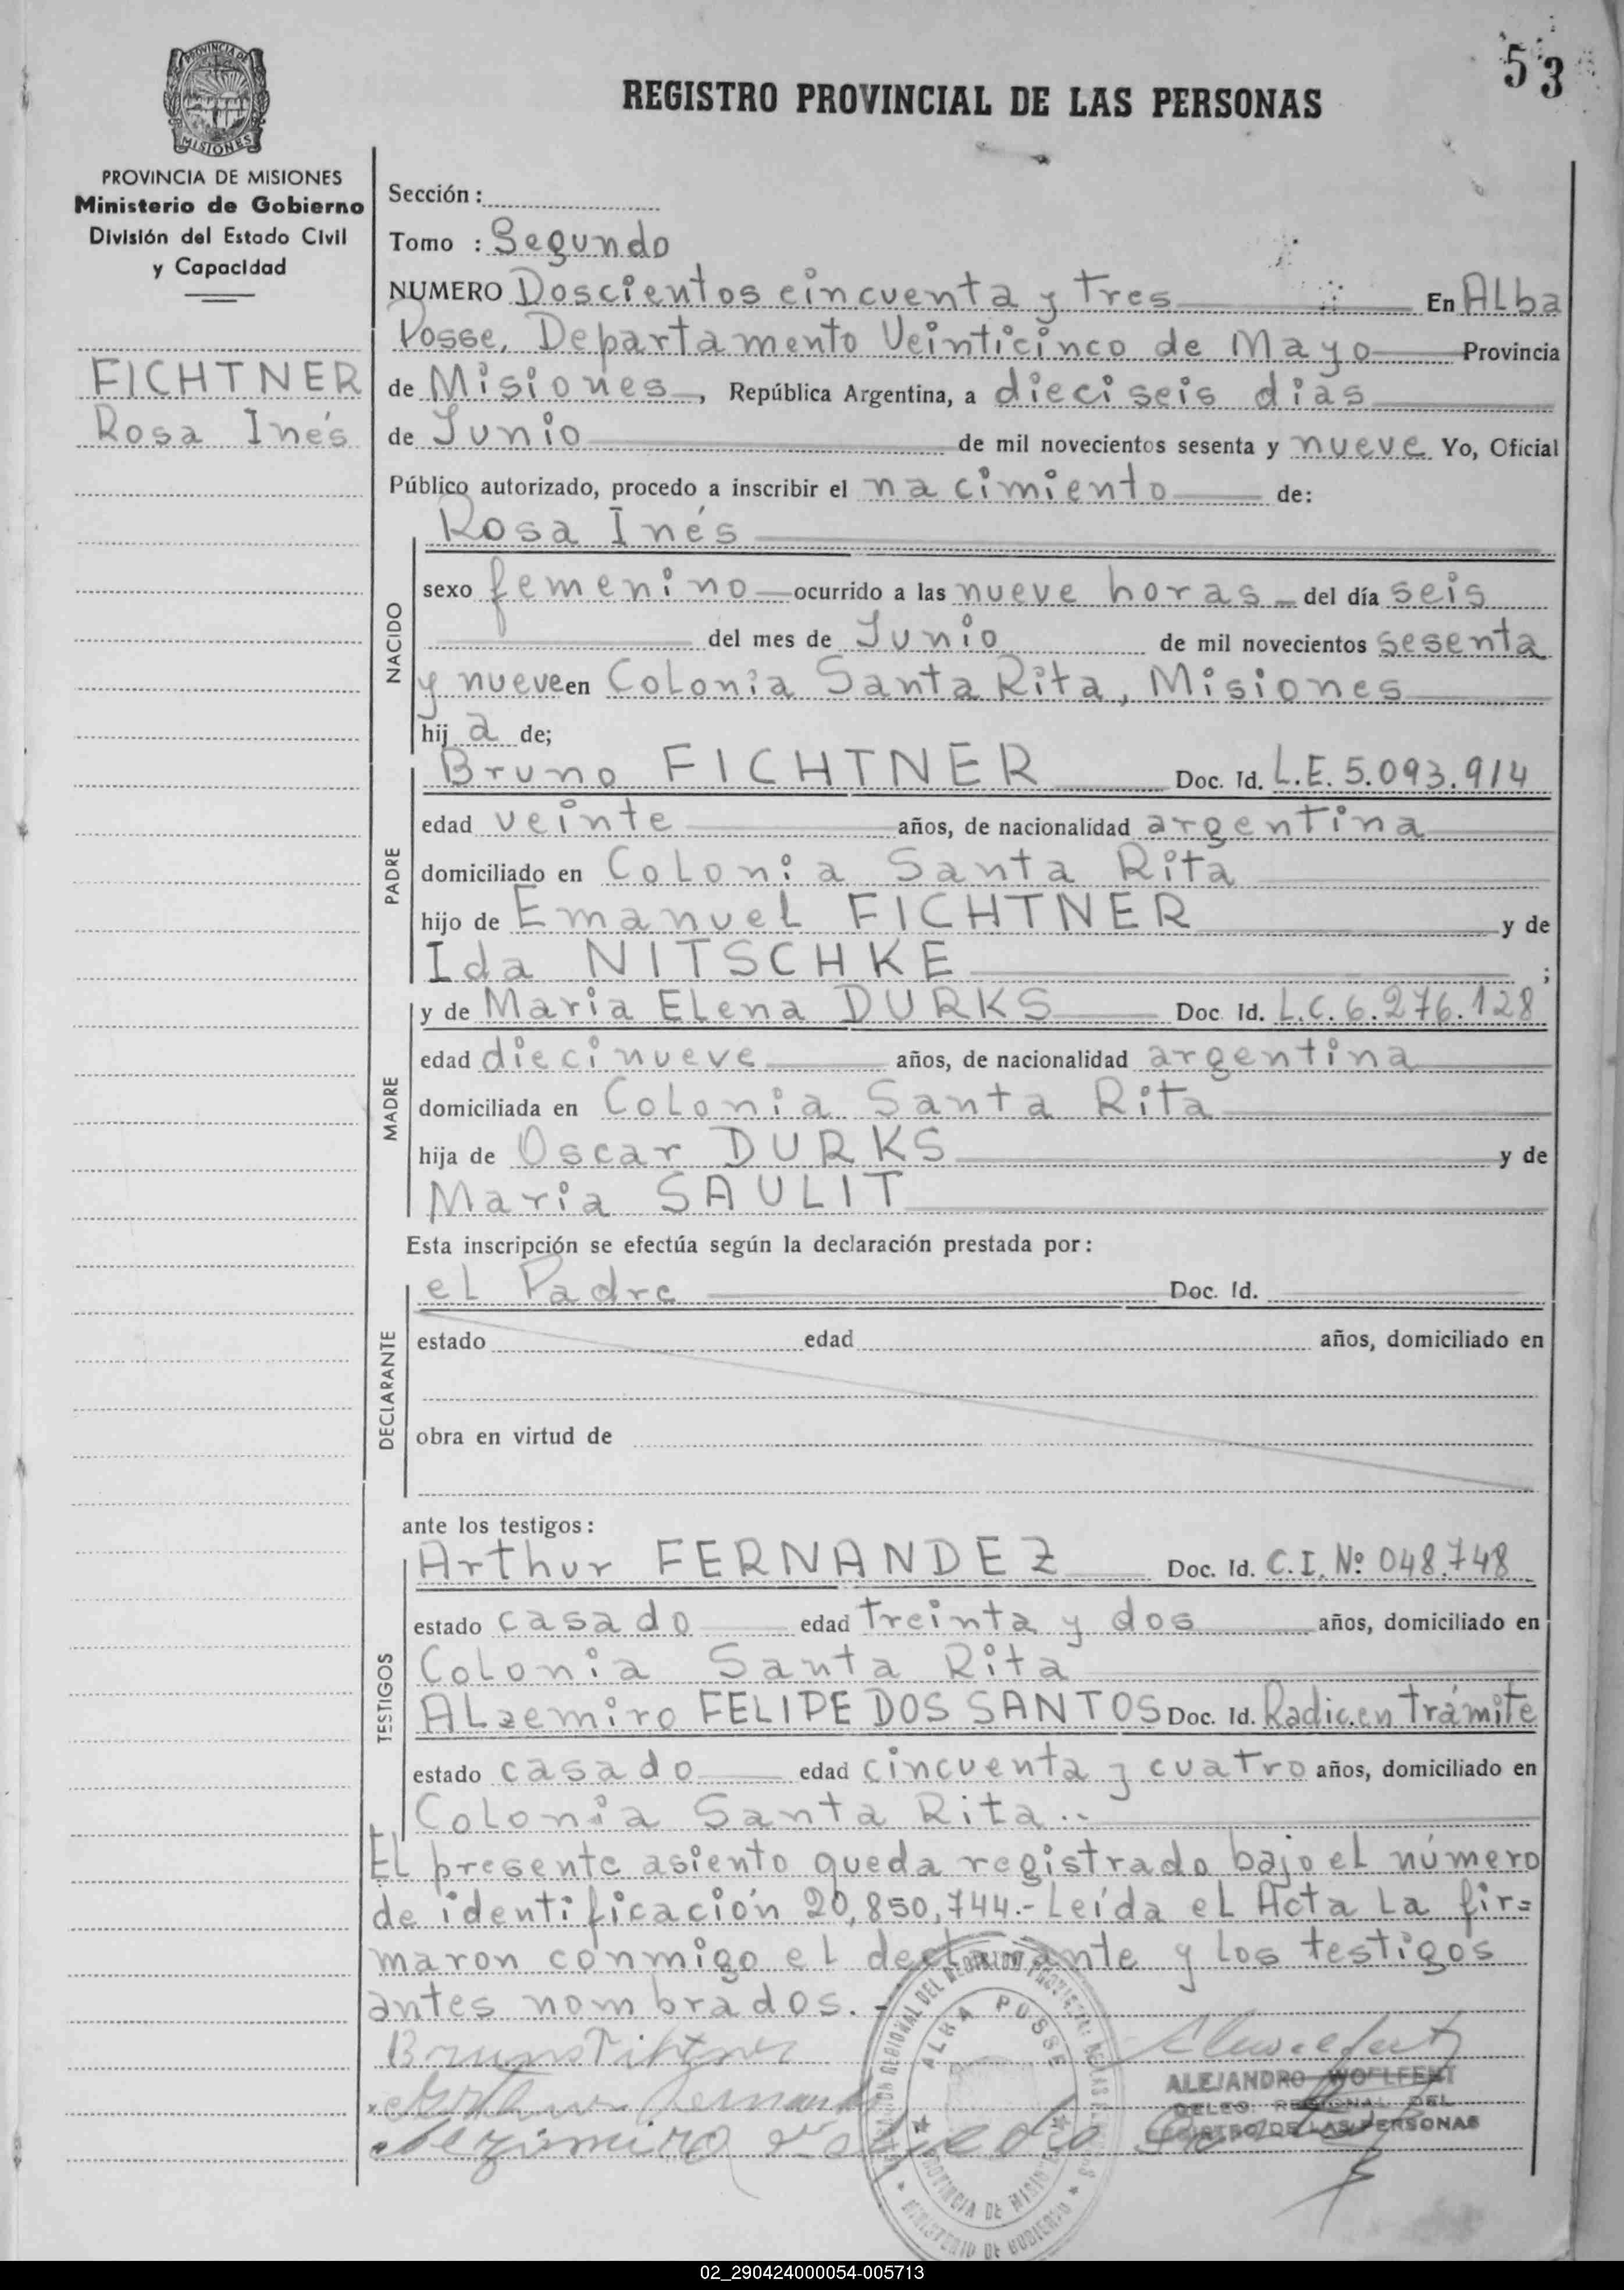 53
REGISTRO PROVINCIAL DE LAS PERSONAS
PROVINCIA DE
MISIONES
PROVINCIA DE MISIONES
Ministerio de Gobierno
División del Estado Civil
y Capacidad
FICHTNER
Rosa Inés
Sección :
Tomo : Segundo
NUMERO Doscientos cincuenta y tres En Alba
Posse, Departamento Veinticinco de Mayo Provincia
de Misiones, República Argentina, a dieciseis dias
de Junio de mil novecientos sesenta y nueve Yo, Oficial
Público autorizado, procedo a inscribir el nacimiento de:
NACIDO
Rosa Inés
sexo femenino ocurrido a las nueve horas del día seis
del mes de Junio de mil novecientos sesenta
y nueve en Colonia Santa Rita, Misiones
hij a de;
PADRE
Bruno FICHTNER Doc. Id. L.E. 5.093.914
edad veinte años, de nacionalidad argentina
domiciliado en Colonia Santa Rita
hijo de Emanuel FICHTNER y de
Ida NITSCHKE ;
MADRE
y de Maria Elena DURKS Doc. Id. L.C. 6.276.128
edad diecinueve años, de nacionalidad argentina
domiciliada en Colonia Santa Rita
hija de Oscar DURKS y de
Maria SAULIT
Esta inscripción se efectúa según la declaración prestada por:
DECLARANTE
el Padre Doc. Id.
estado edad años, domiciliado en
obra en virtud de
ante los testigos:
TESTIGOS
Arthur FERNANDEZ Doc. Id. C.I. Nº 048.748
estado casado edad treinta y dos años, domiciliado en
Colonia Santa Rita
Alzemiro FELIPE DOS SANTOS Doc. Id. Radic. en trámite
estado casado edad cincuenta y cuatro años, domiciliado en
Colonia Santa Rita.-
El presente asiento queda registrado bajo el número
de identificación 20,850,744.- Leída el Acta la fir=
maron conmigo el declarante y los testigos
antes nombrados.-
ALBA POSSE
PROVINCIA DE MISIONES
MINISTERIO DE GOBIERNO
ALEJANDRO
REGIONAL DEL
REGISTRO DE LAS PERSONAS
02_290424000054-005713